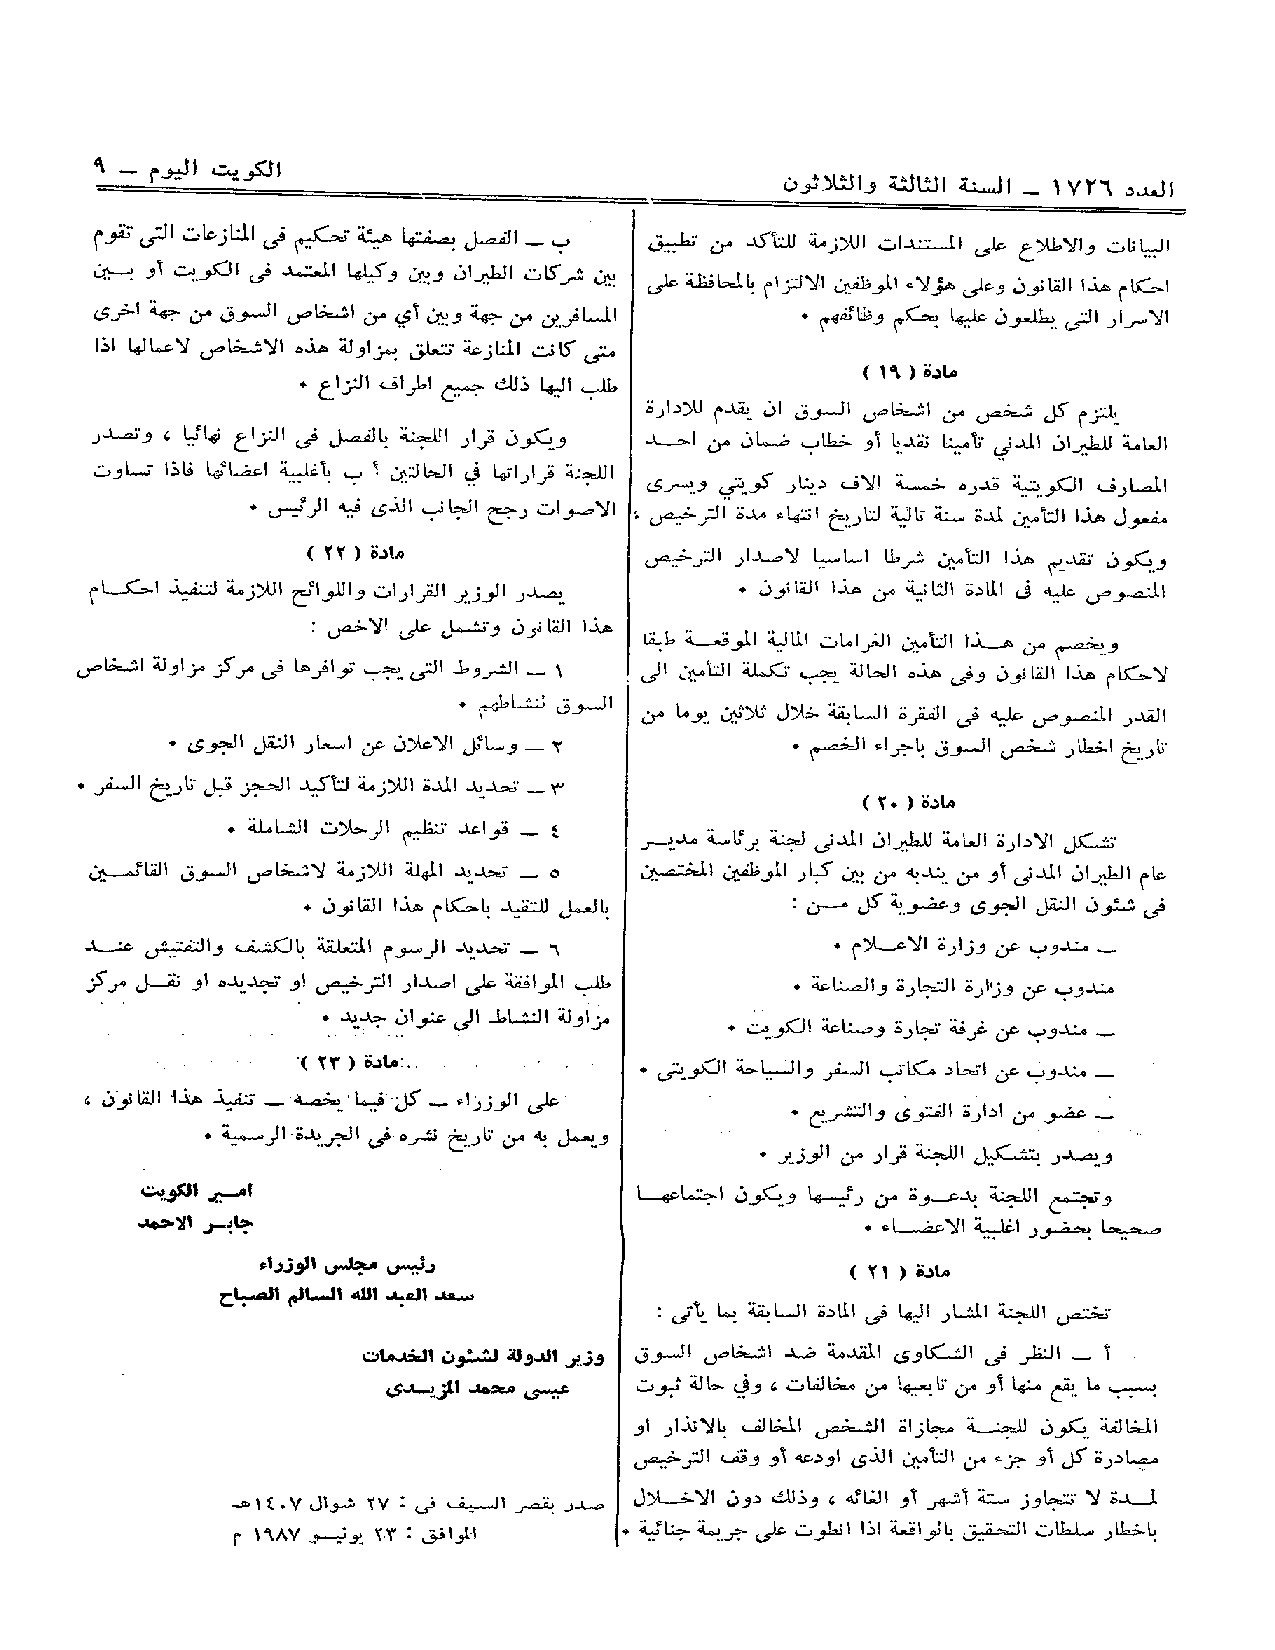 العدد ١٧٢٦ ــ السنة الثالثة والثلاثون
الكويت اليوم ــ ٩
البيانات والاطلاع على المستندات اللازمة للتأكد من تطبيق
احكام هذا القانون وعلى هؤلاء الموظفين الالتزام بالمحافظة على
الاسرار التى يطلعون عليها بحكم وظائفهم •
مادة ( ١٩ )
يلتزم كل شخص من اشخاص السوق ان يقدم للادارة
العامة للطيران المدني تأمينا نقديا أو خطاب ضمان من احـــد
المصارف الكويتية قدره خمسة الاف دينار كويتي ويسرى
مفعول هذا التأمين لمدة سنة تالية لتاريخ انتهاء مدة الترخيص ،
ويكون تقديم هذا التأمين شرطا اساسيا لاصدار الترخيص
المنصوص عليه فى المادة الثانية من هذا القانون •
ويخصم من هـــذا التأمين الغرامات المالية الموقعـــة طبقا
لاحكام هذا القانون وفى هذه الحالة يجب تكملة التأمين الى
القدر المنصوص عليه فى الفقرة السابقة خلال ثلاثين يوما من
تاريخ اخطار شخص السوق باجراء الخصم •
مادة ( ٢٠ )
تشكل الادارة العامة للطيران المدنى لجنة برئاسة مديـــر
عام الطيران المدنى أو من يندبه من بين كبار الموظفين المختصين
فى شئون النقل الجوى وعضوية كل مـــن :
ــ مندوب عن وزارة الاعـــلام •
مندوب عن وزارة التجارة والصناعة •
ــ مندوب عن غرفة تجارة وصناعة الكويت •
ــ مندوب عن اتحاد مكاتب السفر والسياحة الكويتى •
ــ عضو من ادارة الفتوى والتشريع •
ويصدر بتشكيل اللجنة قرار من الوزير •
وتجتمع اللجنة بدعـــوة من رئيسها ويكون اجتماعهـــا
صحيحا بحضور اغلبية الاعضـــاء •
مادة ( ٢١ )
تختص اللجنة المشار اليها فى المادة السابقة بما يأتى :
أ ــ النظر فى الشكاوى المقدمة ضد اشخاص السوق
بسبب ما يقع منها أو من تابعيها من مخالفات ، وفي حالة ثبوت
المخالفة يكون للجنـــة مجازاة الشخص المخالف بالانذار او
مصادرة كل أو جزء من التأمين الذى اودعه أو وقف الترخيص
لمـــدة لا تتجاوز ستة أشهر أو الغائه ، وذلك دون الاخـــلال
باخطار سلطات التحقيق بالواقعة اذا انطوت على جريمة جنائية •
ب ــ الفصل بصفتها هيئة تحكيم فى المنازعات التى تقوم
بين شركات الطيران وبين وكيلها المعتمد فى الكويت أو بـــين
المسافرين من جهة وبين أي من اشخاص السوق من جهة اخرى
متى كانت المنازعة تتعلق بمزاولة هذه الاشخاص لاعمالها اذا
طلب اليها ذلك جميع اطراف النزاع •
ويكون قرار اللجنة بالفصل فى النزاع نهائيا ، وتصدر
اللجنة قراراتها في الحالتين أ ب بأغلبية اعضائها فاذا تساوت
الاصوات رجح الجانب الذى فيه الرئيس •
مادة ( ٢٢ )
يصدر الوزير القرارات واللوائح اللازمة لتنفيذ احكـــام
هذا القانون وتشمل على الاخص :
١ ــ الشروط التى يجب توافرها فى مركز مزاولة اشخاص
السوق لنشاطهم •
٢ ــ وسائل الاعلان عن اسعار النقل الجوى •
٣ ــ تحديد المدة اللازمة لتأكيد الحجز قبل تاريخ السفر •
٤ ــ قواعد تنظيم الرحلات الشاملة •
٥ ــ تحديد المهلة اللازمة لاشخاص السوق القائمـــين
بالعمل للتقيد باحكام هذا القانون •
٦ ــ تحديد الرسوم المتعلقة بالكشف والتفتيش عنـــد
طلب الموافقة على اصدار الترخيص او تجديده او نقـــل مركز
مزاولة النشاط الى عنوان جديد •
مادة ( ٢٣ )
على الوزراء ــ كل فيما يخصه ــ تنفيذ هذا القانون ،
ويعمل به من تاريخ نشره فى الجريدة الرسمية •
امـــير الكويت
جابـــر الاحمد
رئيس مجلس الوزراء
سعد العبد الله السالم الصباح
وزير الدولة لشئون الخدمات
عيسى محمد المزيـــدى
صدر بقصر السيف فى : ٢٧ شوال ١٤٠٧هـ
الموافق : ٢٣ يونيـــو ١٩٨٧ م